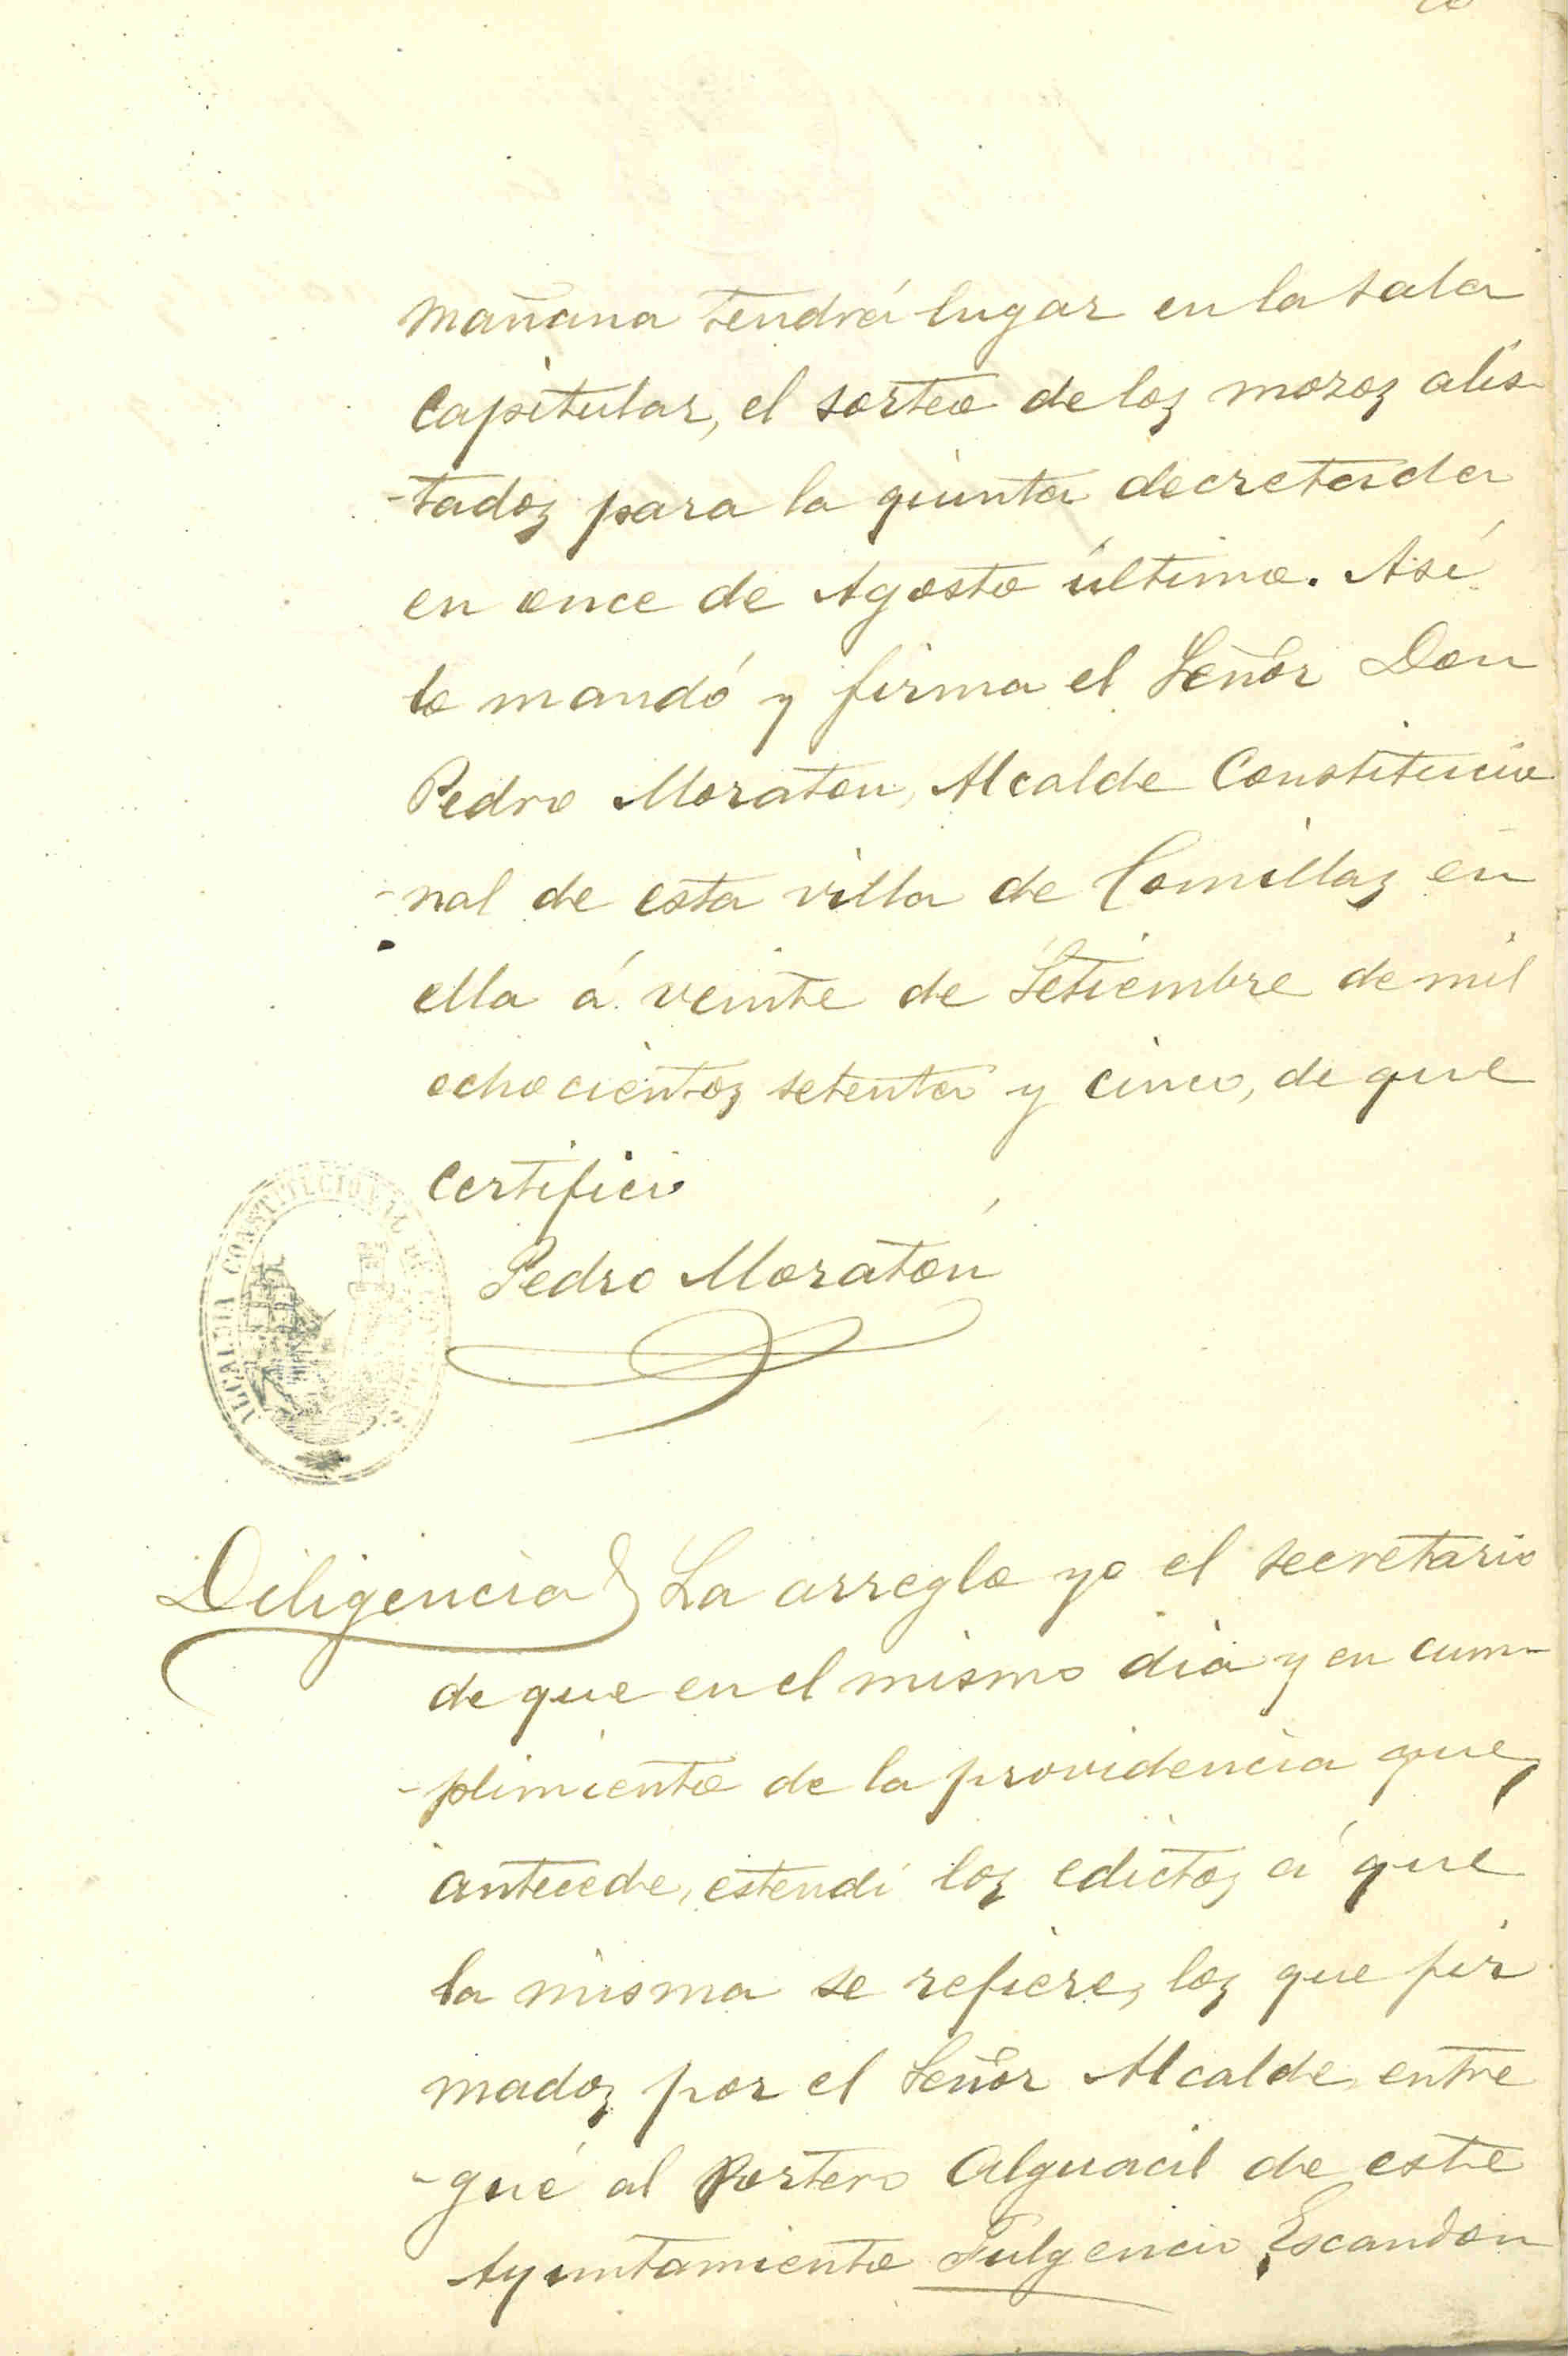 mañana tendrá lugar en la sala
Capitular, el sorteo de los mozos alis-
-tados para la quinta decretada
en once de Agosto último. Así
lo mandó y firma el Señor Don
Pedro Moraton, Alcalde Constitucio
-nal de esta villa de Comillas en
ella á veinte de Setiembre de mil
ochocientos setenta y cinco, de que
Certifico
Pedro Moratón
ALCALDIA CONSTITUCIONAL DE COMILLAS
Diligencia La arreglo yo el secretario
de que en el mismo dia y en cum-
-plimiento de la providencia que
antecede, estendí los edictos á que
la misma se refiere, los que fir
mados por el Señor Alcalde, entre
-gué al Portero Alguacil de este
Ayuntamiento Fulgencio Escandon